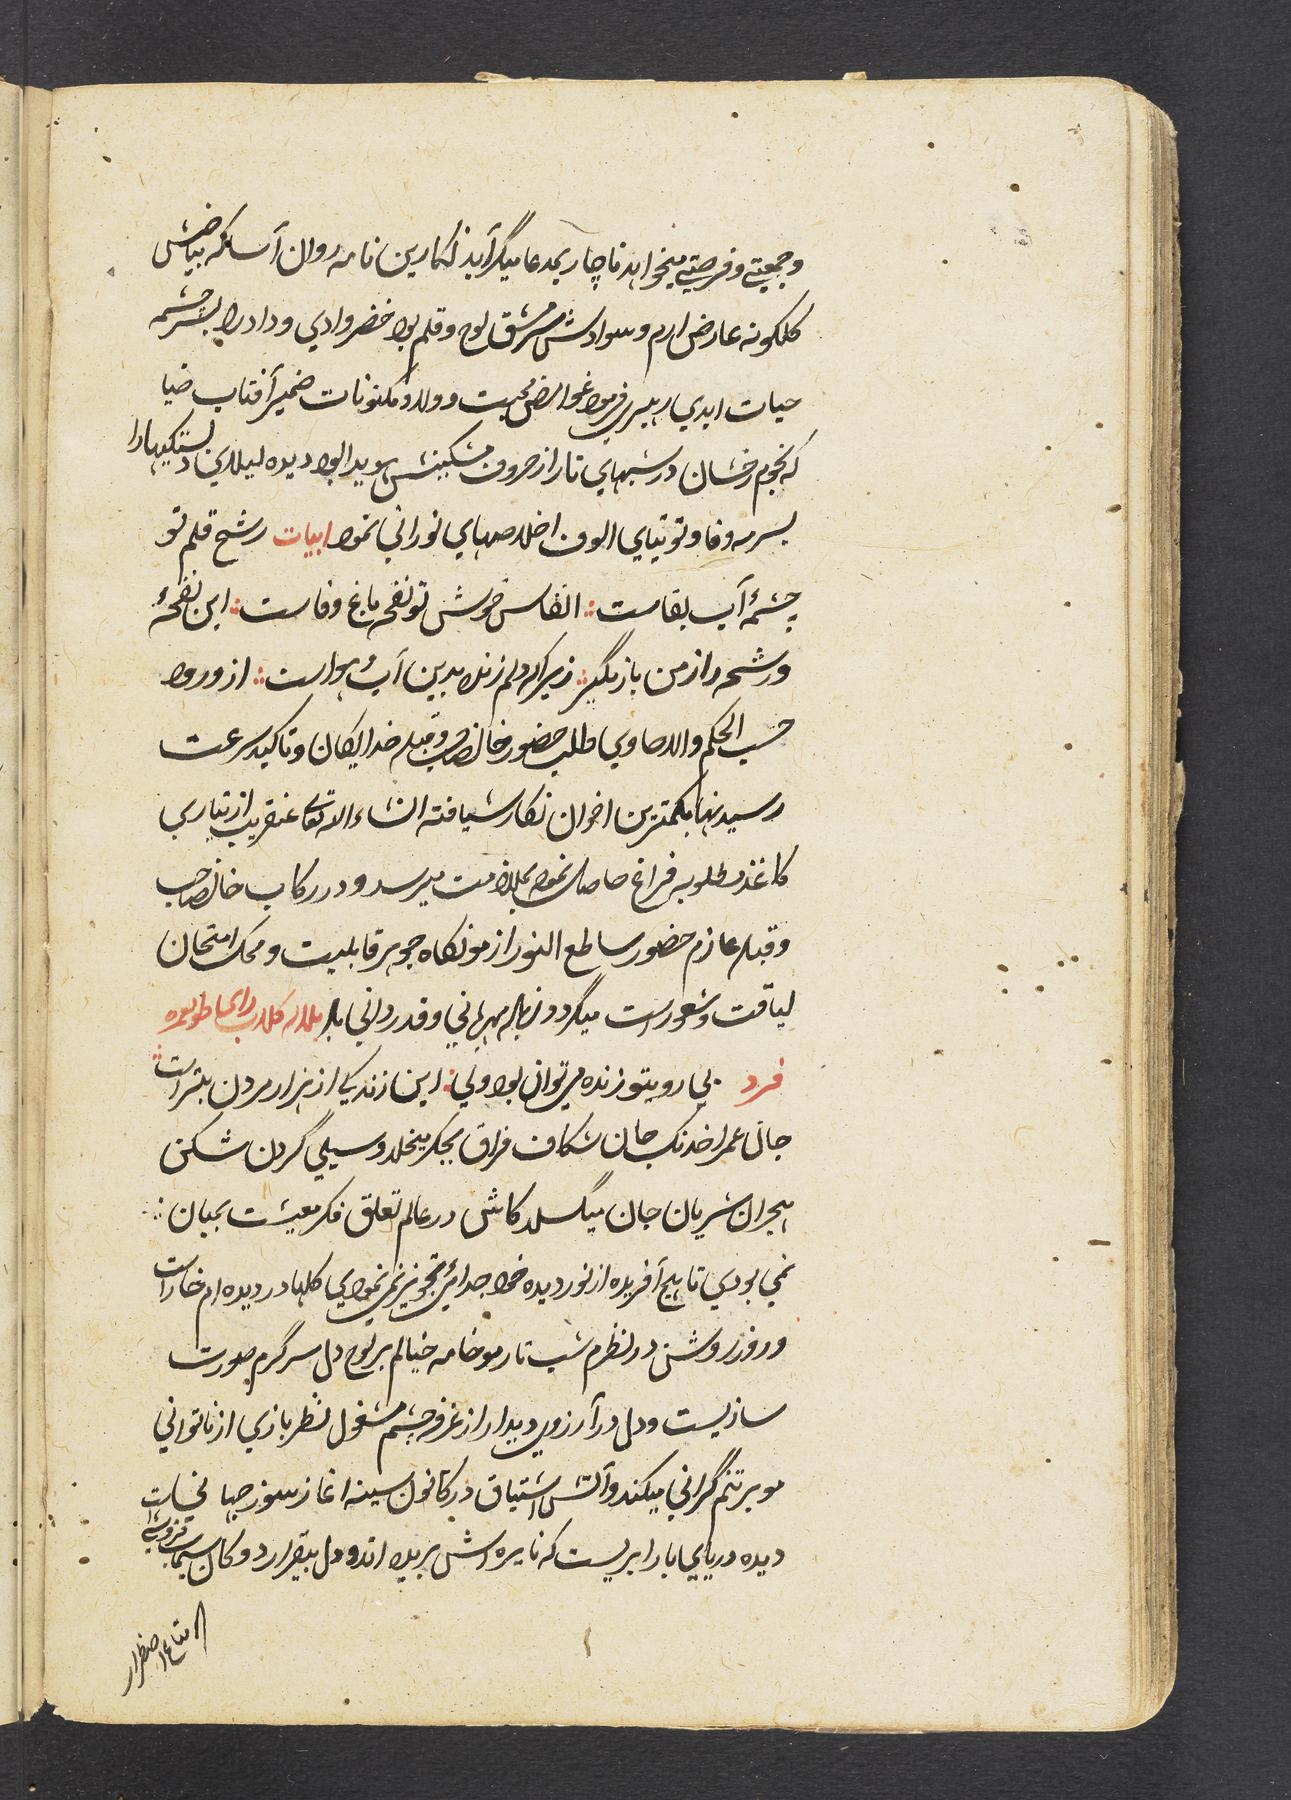 وجمعیتی و فرصتی میخواهد ناچار بمدعا میگراید نکارین نامه روان آسا که بیاضش
کلکونه عارض ارم و سوادش مشق لوح و قلم بود خضر وادی وداد را بسرچشمه
حیات ابدی رهبری فرمود غوامض محبت و ولا و مکنونات ضمیر آفتاب ضیا
که نجوم رخشان در شبهای تار از حروف مشکینش هویدا بود دیده لیلای دلبستکیها را
بسرمه وفا و توتیای الوف اخلاصهای نورانی نمود ابیات رشح قلم تو
چشمهٔ آب بقاست انفاس خوش تو نفحه باغ وفاست این نفحهٔ
و رشحه را از من باز مگیر زیرا که دلم زنده بدین آب و هواست از ورود
حسب الحکم والا حاوی طلب حضور خان صاحب و قبله خدایکان و تاکید سرعت
رسیدنها بکمترین اخوان نکارش یافته انشاء الله تعالی عنقریب از تیاری
کاغذ مطلوبه فراغ حاصل نموده بملازمت میرسد و در رکاب خان صاحب
و قبله عازم حضور ساطع النور از مونکاه جوهر قابلیت و محک امتحان
لیاقت و شعور است میگردد زیاده مهربانی و قدردانی باد بلاله کلاب رای
فرد بی روی تو زنده می توان بود ولی این زندیکی از هزار مردن بتر است
جان عمرا خدنک جان شکاف فراق بجکر میخلد و سیلی گردن شکن
هجران شریان جان میگسلد کاش در عالم تعلق فکر معیشت بمیان
نمی بودی تا هیچ آفریده از نور دیده خود جدائی تجویز نمی نمودی کلها در دیده ام خار است
و روز روشن در نظرم شب تار مو خامه خیالم بر لوح دل سرگرم صورت
سازیست و دل در آرزوی دیدار از غرفه چشم مشغول نظربازی از ناتوانی
مو بر تنم گرانی میکند و آتش اشتیاق در کانون سینه اغاز سوز جهانی است
دیده دریایی بار ابریست که نایره اش برید اند و دل بیقرار دوکان سیماب فروشی
متاع اضطرار